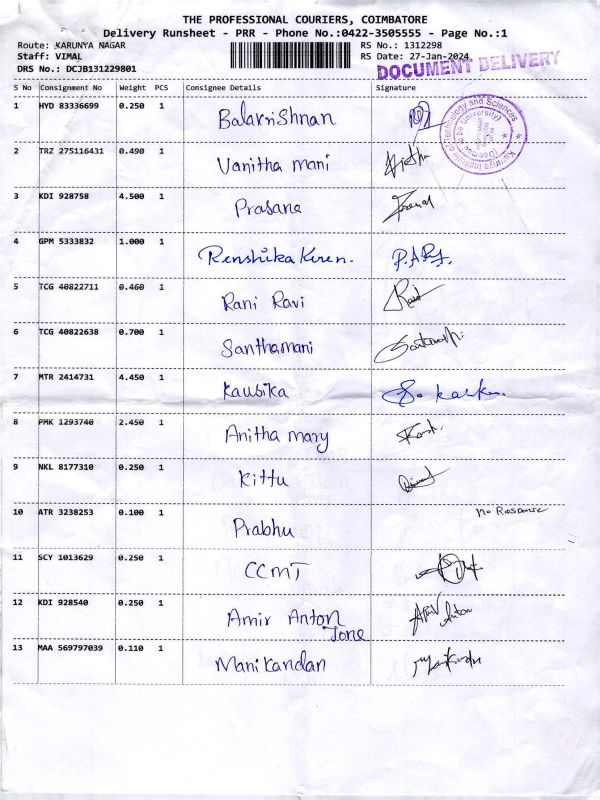 THE PROFESSIONAL COURIERS, COIMBATORE
Delivery Runsheet - PRR - Phone No.:0422-3505555 - Page No.:1
Route: KARUNYA NAGAR RS No.: 1312298
Staff: VIMAL RS Date: 27-Jan-2024
DRS No.: DCJB131229801
DOCUMENT DELIVERY
S No Consignment No Weight PCS Consignee Details Signature
1 HYD 83336699 0.250 1 Balakrishnan
Karunya Institute of Technology and Sciences
(Deemed to be University)
2 TRZ 275116431 0.490 1 Vanitha mani
3 KDI 928758 4.500 1 Prasana
4 GPM 5333832 1.000 1 Renshika Kiren.
5 TCG 40822711 0.460 1 Rani Ravi
6 TCG 40822638 0.700 1 Santhamani
7 MTR 2414731 4.450 1 Kausika
8 PMK 1293740 2.450 1 Anitha mary
9 NKL 8177310 0.250 1 Kittu
10 ATR 3238253 0.100 1 Prabhu No Response
11 SCY 1013629 0.250 1 CCMT
12 KDI 928540 0.250 1 Amir Anton
Jone
13 MAA 569797039 0.110 1 Manikandan